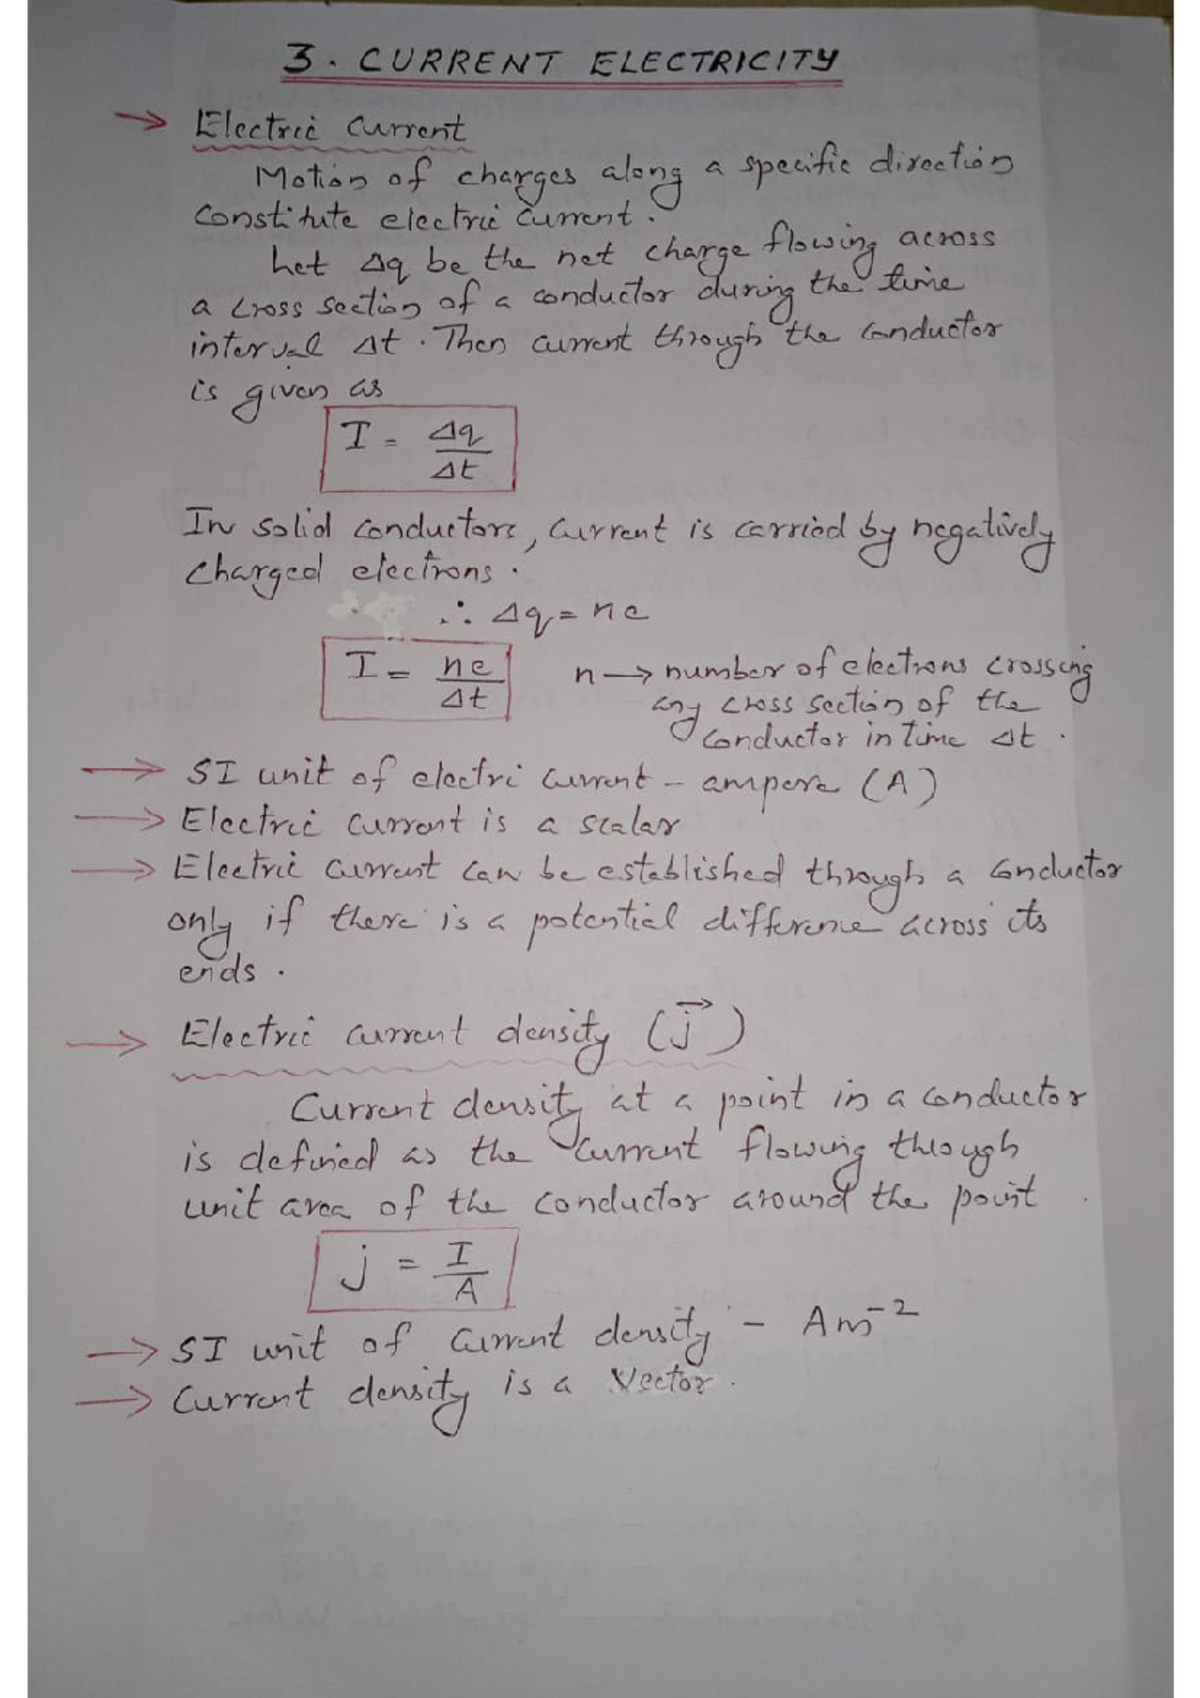 3. CURRENT ELECTRICITY
→ Electric Current
Motion of charges along a specific direction
constitute electric current.
Let Δq be the net charge flowing across
a cross section of a conductor during the time
interval Δt. Then current through the conductor
is given as
I = Δq/Δt
In solid conductors, current is carried by negatively
charged electrons.
∴ Δq = ne
I = ne/Δt n → number of electrons crossing
any cross section of the
conductor in time Δt.
→ SI unit of electri current – ampere (A)
→ Electric current is a scalar
→ Electric current can be established through a conductor
only if there is a potential difference across its
ends.
→ Electric current density (j⃗)
Current density at a point in a conductor
is defined as the current flowing through
unit area of the conductor around the point.
j = I/A
→ SI unit of current density – Am⁻²
→ Current density is a vector.